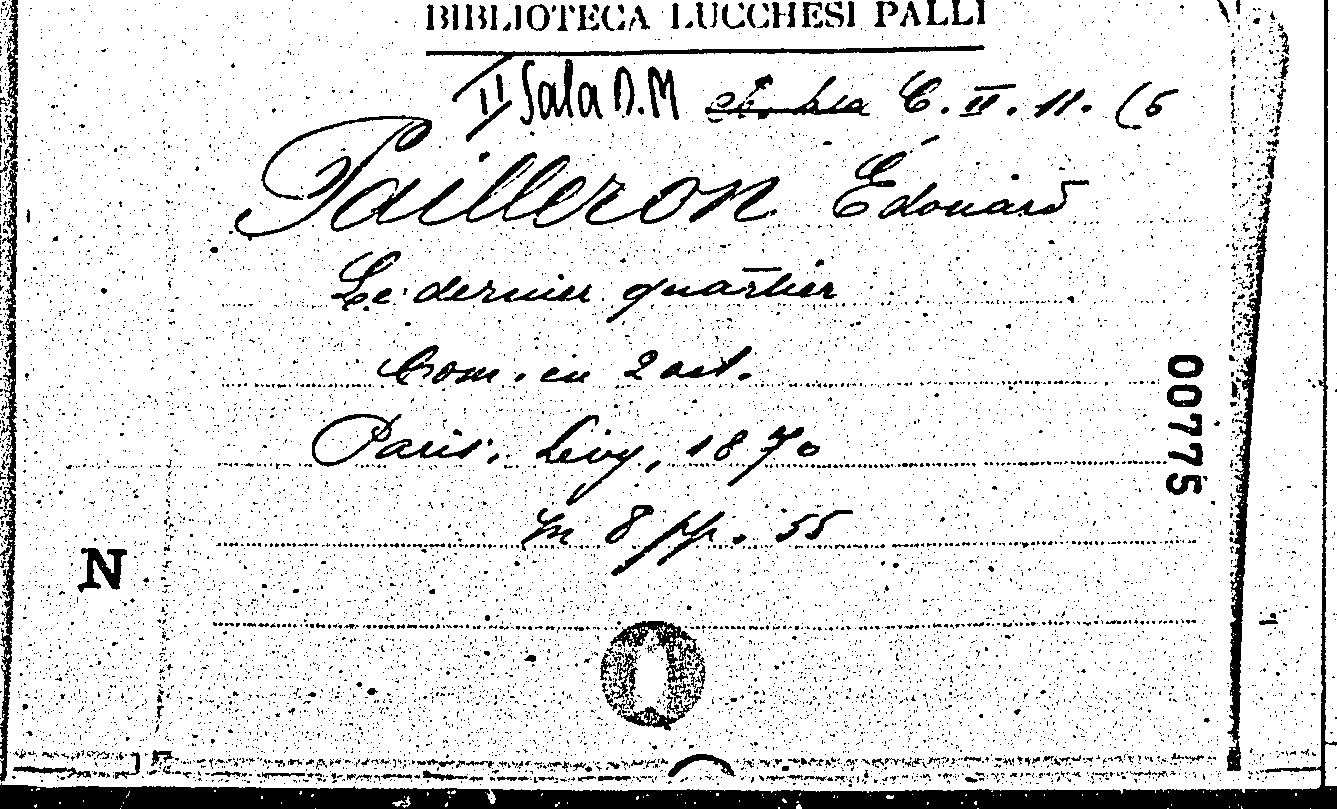 BIBLIOTECA LUCCHESI PALLI
II Sala D.M C. II. 11. (5
Pailleron Édouard
Le dernier quartier
Com. en 2 act.
Paris, Lévy, 1870
in 8 pp. 55
00775
N